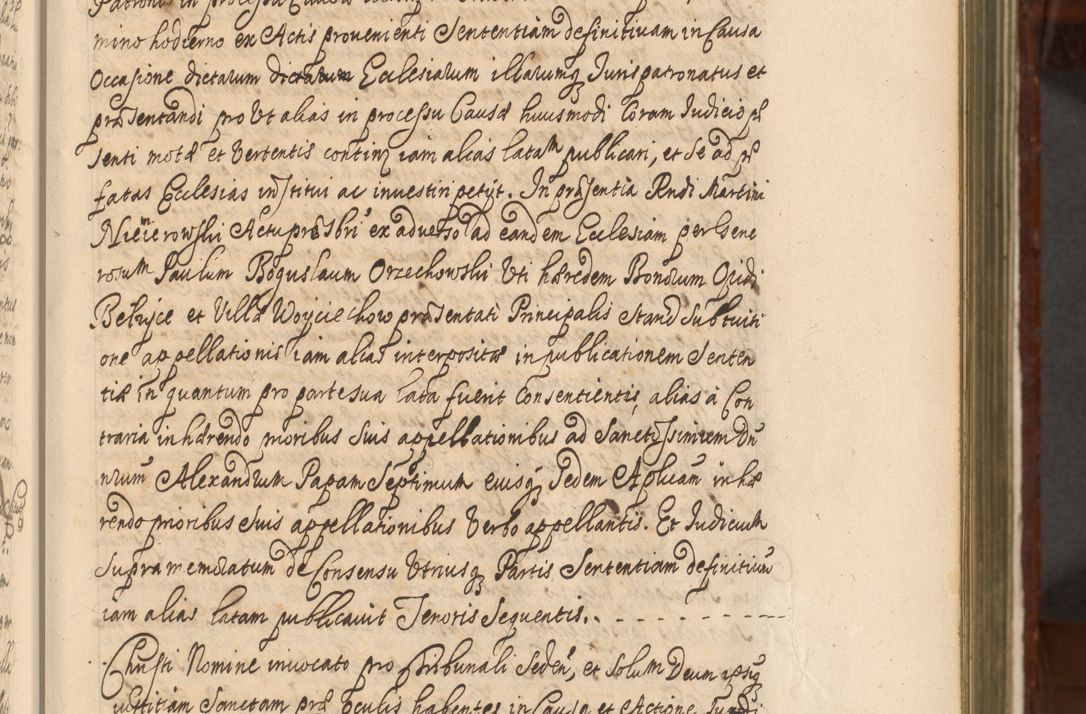 Patronis in processu Causæ
mino hodierno ex Actis provenienti Sententiam definitivam in Causa
Occasione dictarum dictarum Ecclesiarum illarumq3 Jurispatronatus et
præsentandi pro Ut alias in processu Causæ huiusmodi Coram Judicio præ
senti motæ et Vertentis contin3 iam alias latam publicari, et se ad præ
fatas Ecclesias institui ac investiri petijt. In præsentia Rndi Martini
Niemierowski Actu præsbri ex adverso ad eandem Ecclesiam per Gene
rosum Paulum Boguslaum Orzechowski Uti hæredem Bonorum Oridi
Belzyce et Villæ Woyciechow præsentati Principalis stand Sub tuiti
one appellationis iam alias interpositæ in publicationem Senten
tiæ in quantum pro parte sua lata fuerit Consentientis, alias à Con
traria inhærendo prioribus suis appellationibus ad Sanctissimum Dn̄
nrum Alexandrum Papam Septimum eiusq3 Sedem Aplicam inhæ
rendo prioribus suis appellationibus Verbo appellantis. Et Judicium
supra memoratum de Consensu Utriusq3 Partis Sententiam definitivam
iam alias latam publicavit Tenoris Sequentis.. - - - - - - -
Christi Nomine invocato pro Tribunali Seden, et solum Deum ipsiusq3
iustitiam Sanctam præ oculis habentes in Causa et Actione